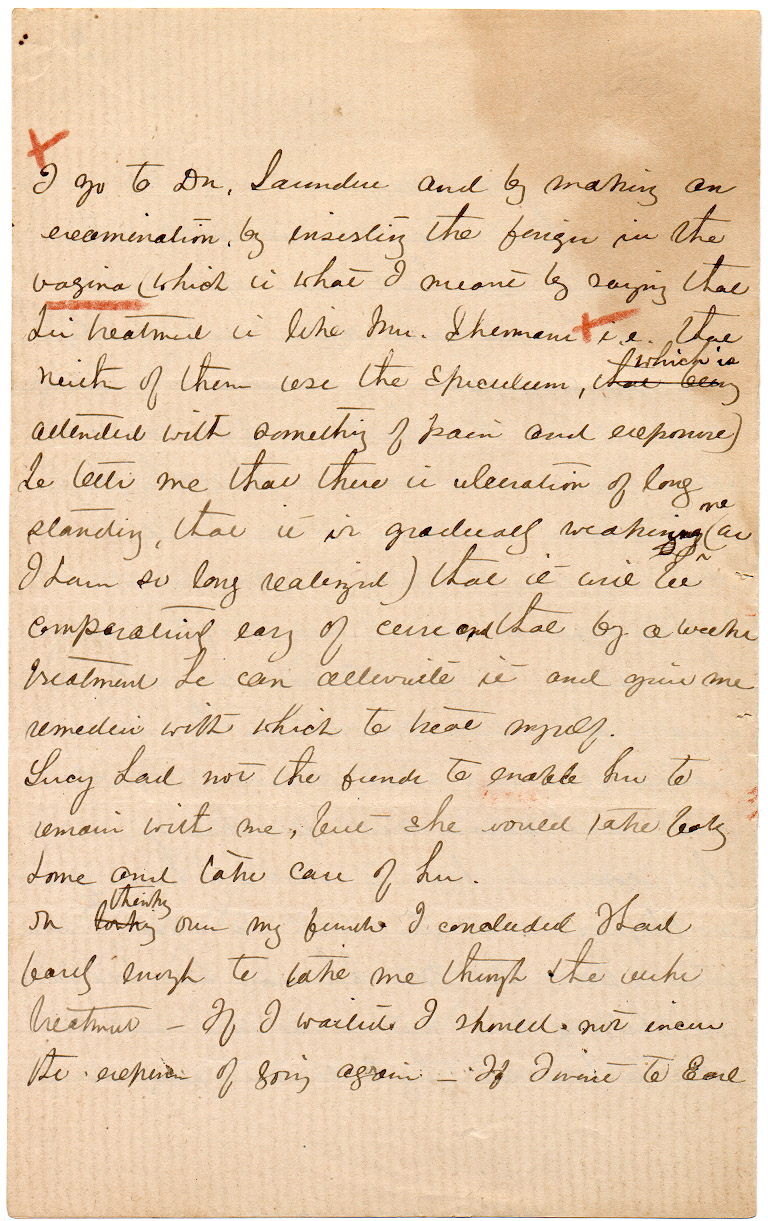 I go to Dr. Saunders and by making an
examination, by inserting the finger in the
vagina (which is what I meant by saying that
his treatment is like Mrs. Shermans i.e. that
neither of them use the speculum, that being which is
attended with something of pain and exposure)
he tells me that there is ulceration of long
standing, that it is gradually weakening me (as
I have so long realized) that it will be
comparatively easy of cure and that by a weeks
treatment he can alleviate it and give me
remedies with which to treat myself.
Lucy had not the funds to enable her to
remain with me, but she would take baby
home and take care of her.
On thinking over my funds I concluded I had
barely enough to take me through the weeks
treatment – If I waited I should not incur
the expense of going again – If I went to Earl